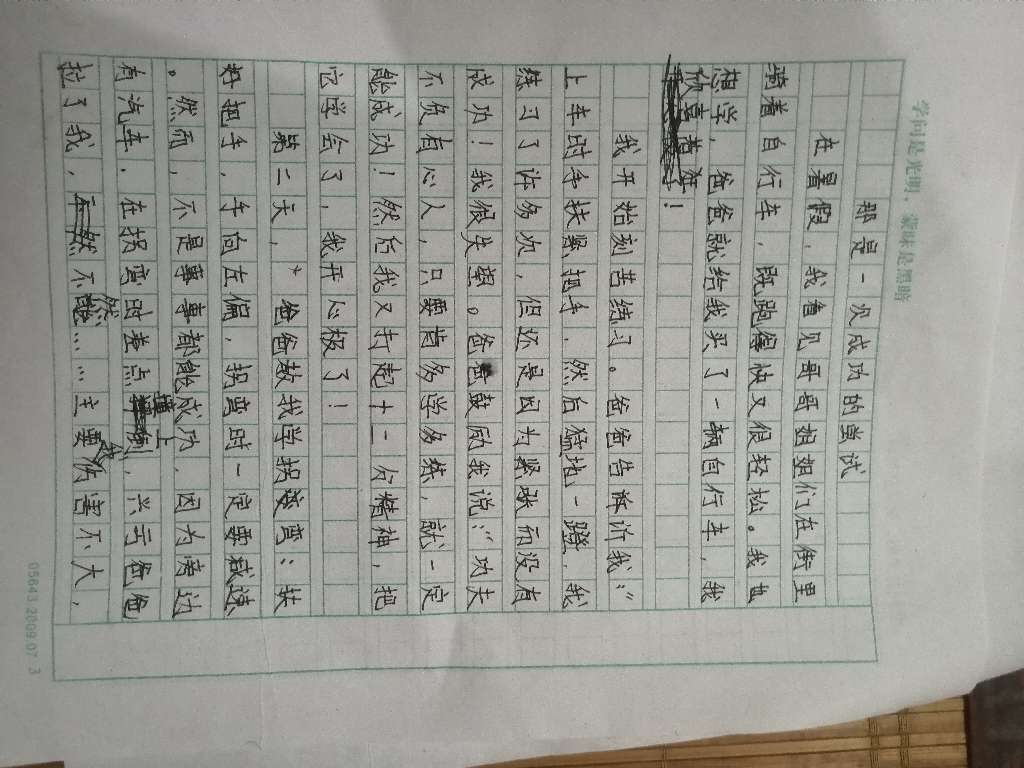 学问是光明，蒙昧是黑暗
那是一次成功的尝试
在暑假，我看见哥哥姐姐们在街里
骑着自行车，既跑得快又很轻松。我也
想学，爸爸就给我买了一辆自行车，我
欣喜若狂！
我开始刻苦练习。爸爸告诉许我：“
上车时手扶紧把手，然后猛地一蹬，我
练习了许多次，但还是因为紧张而没有
成功！我很失望。爸爸鼓励我说：“功夫
不负有心人，只要肯多学多练，就一定
能成功！然后我又打起十二分精神，把
它学会了，我开心极了！
第二天，爸爸教我学拐弯：扶
好把手，手向左偏，拐弯时一定要减速
。然而，不是事事都能成功，因为旁边
有汽车，在拐弯时差点撞上，兴亏爸爸
拉了我，不然……主要我伤害不大，
05643.2009.07 3